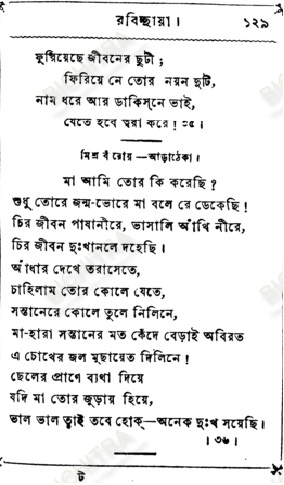 রবিচ্ছায়া। ১২৯
ফুরিয়েছে জীবনের ছুটী;
ফিরিয়ে নে তোর নয়ন দুটি,
নাম ধরে আর ডাকিস্‌নে ভাই,
যেতে হবে ত্বরা করে! ৩৫।
মিশ্র বঁ রোয়া—আড়াঠেকা॥
মা আমি তোর কি করেছি?
শুধু তোরে জন্ম-ভোরে মা বলে রে ডেকেছি!
চির জীবন পাষানীরে, ভাসালি আঁখি নীরে,
চির জীবন দুঃখানলে দহেছি।
আঁধার দেখে তরাসেতে,
চাহিলাম তোর কোলে যেতে,
সন্তানেরে কোলে তুলে নিলিনে,
মা-হারা সন্তানের মত কেঁদে বেড়াই অবিরত
এ চোখের জল মুছায়েত দিলিনে!
ছেলের প্রাণে ব্যথা দিয়ে
যদি মা তোর জুড়ায় হিয়ে,
ভাল ভাল তাই তবে হোক্—অনেক দুঃখ সয়েছি॥
। ৩৬।
ট